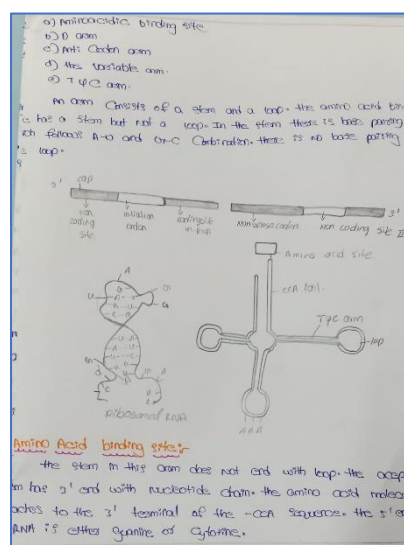 a) Aminoacidic binding site
b) D arm
c) Anti Codon arm
d) the variable arm.
e) TψC arm.
An arm Consists of a stem and a loop. the amino acid bin
is has a stem but not a loop. In the stem there is base pairing
ich follows A-U and G-C Combination. there is no base pairing
s loop.
5' cap 3'
non coding site
initiation codon
coding site
Non coding site II
Amino acid site
CCA tail
TψC arm
loop
AAA
Ribosomal RNA
Amino Acid binding site:-
the stem in this arm does not end with loop. the accep
m has 3' end with nucleotide chain. the amino acid molec
aches to the 3' terminal of the -CCA sequence. the 5' o
RNA is either guanine or Cytosine.